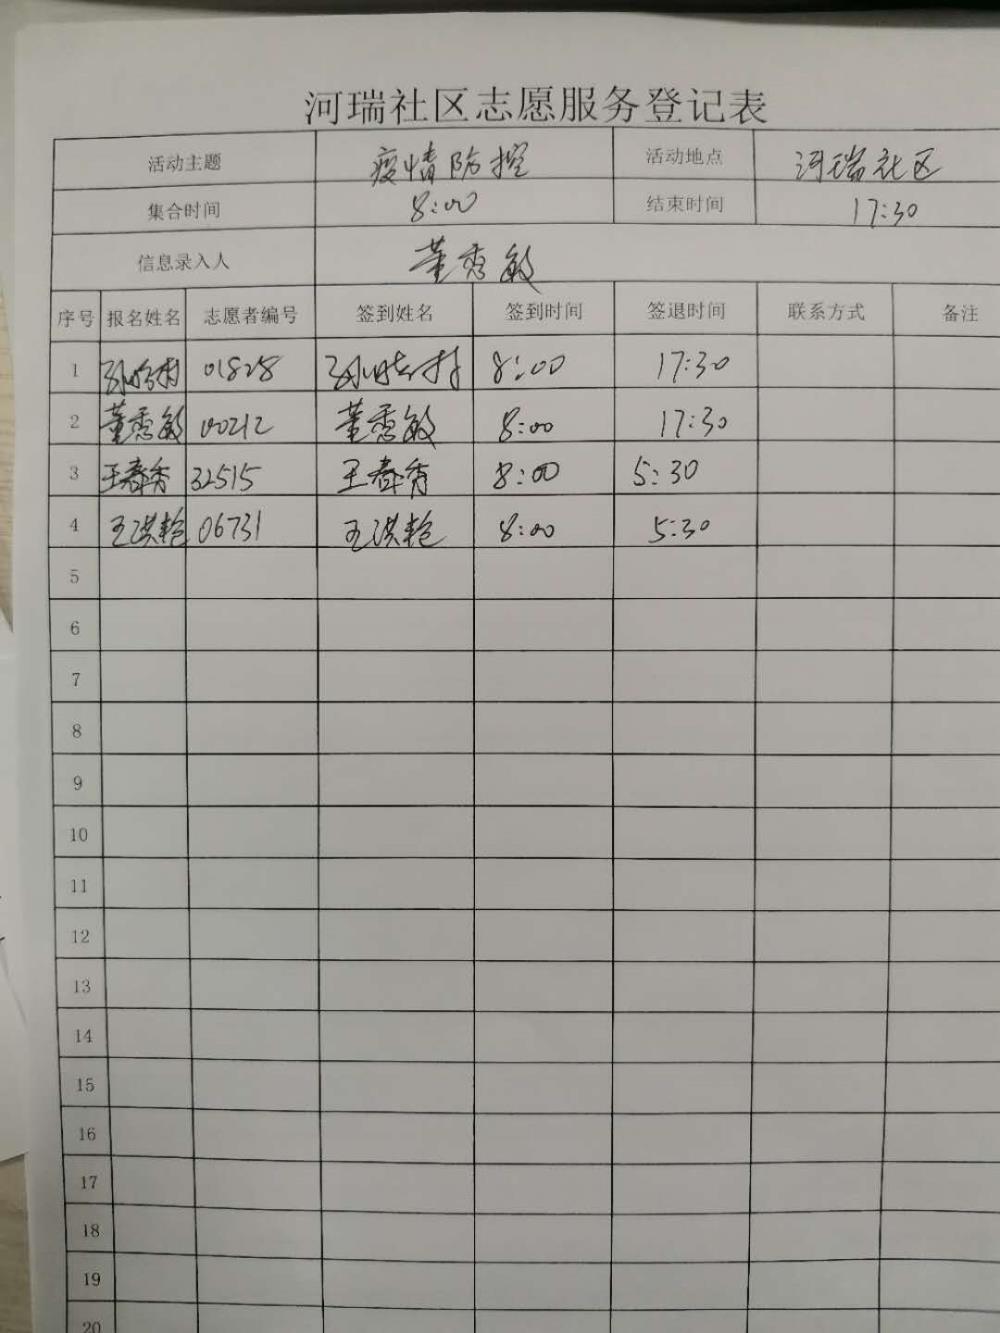 河瑞社区志愿服务登记表
活动主题 疫情防控 活动地点 河瑞社区
集合时间 8:00 结束时间 17:30
信息录入人 董秀敏
序号 报名姓名 志愿者编号 签到姓名 签到时间 签退时间 联系方式 备注
1 01828 8:00 17:30
2 董秀敏 00212 董秀敏 8:00 17:30
3 王春香 32515 王春香 8:00 5:30
4 王洪艳 06731 王洪艳 8:00 5:30
5
6
7
8
9
10
11
12
13
14
15
16
17
18
19
20